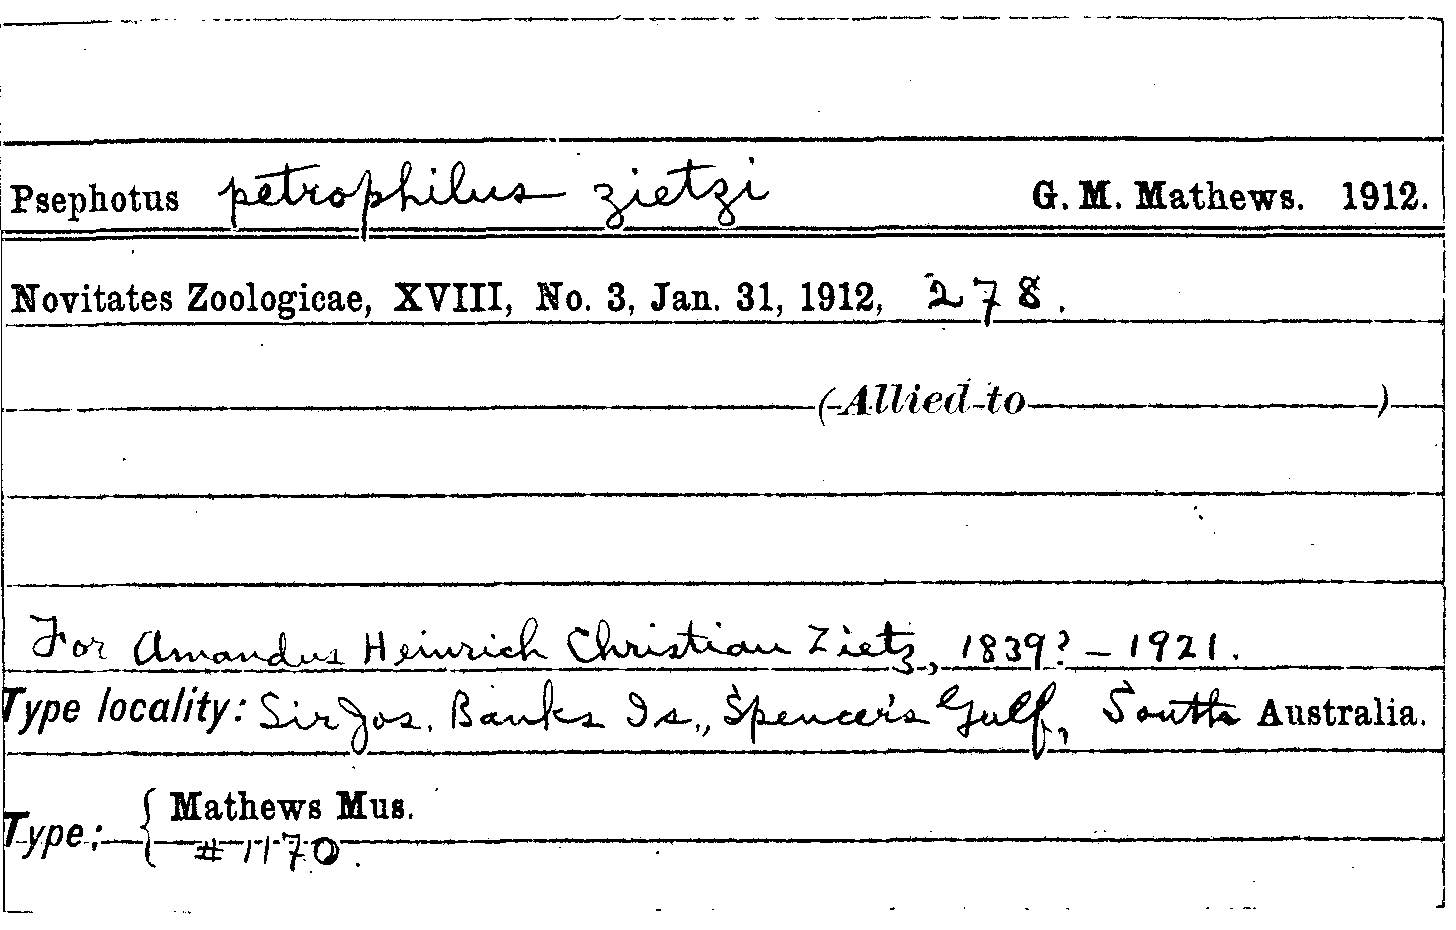 Psephotus petrophilus zietzi G. M. Mathews. 1912.
Novitates Zoologicae, XVIII, No. 3, Jan. 31, 1912, 278.
(Allied to )
For Amandus Heinrich Christian Zietz, 1839? – 1921.
Type locality: Sir Jos. Banks Is., Spencer's Gulf, South Australia.
Type: { Mathews Mus.
# 1170.